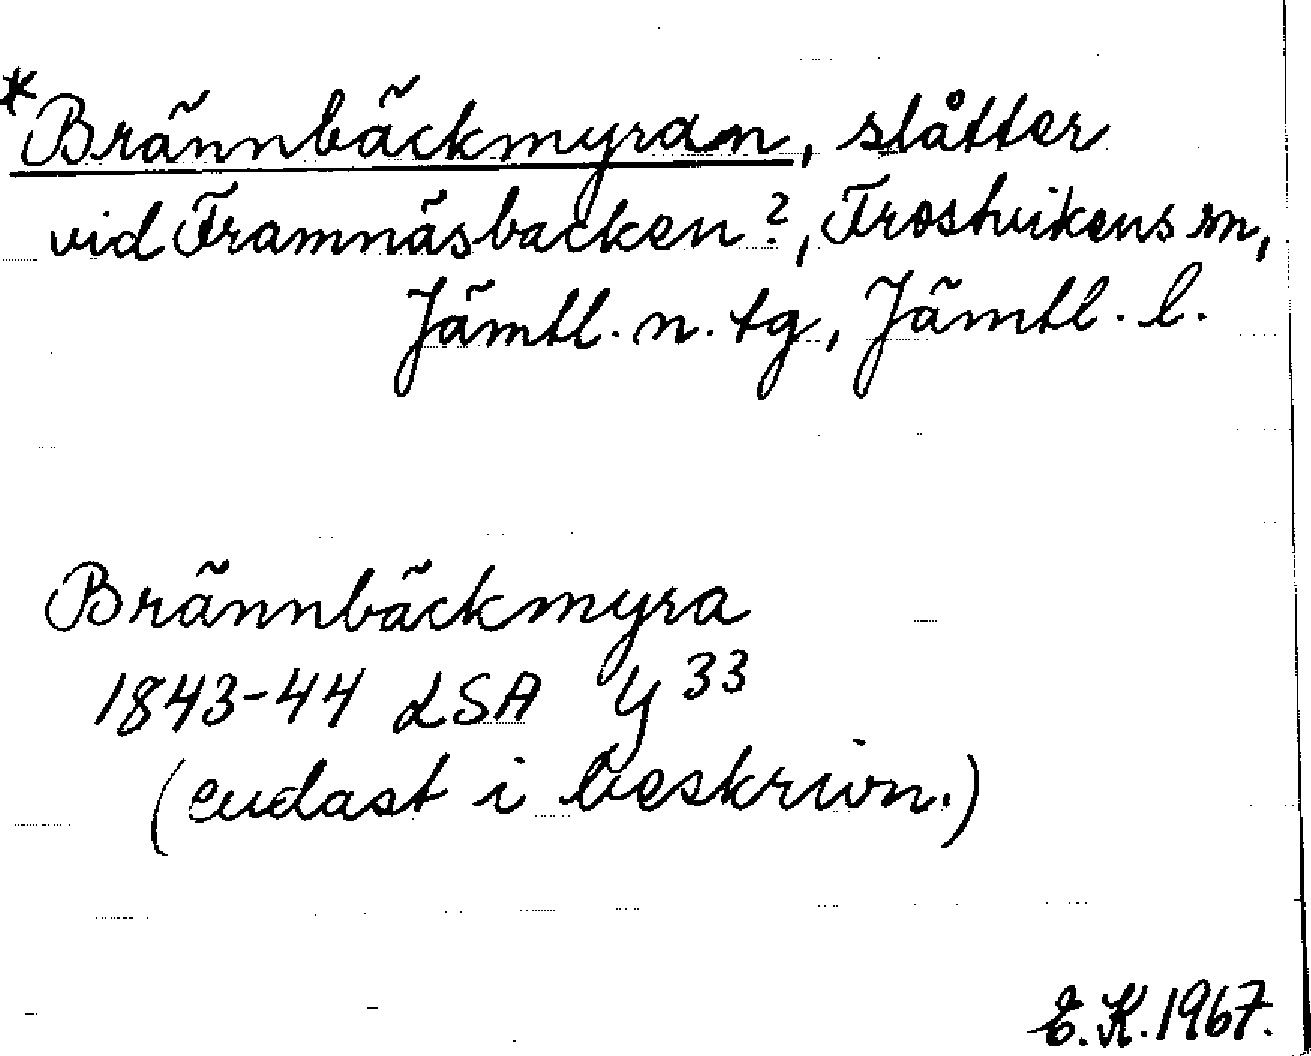 *Brännbäckmyran, slåtter
vid Framnäsbacken?, Frostvikens sn,
Jämtl. n. tg, Jämtl. l.
Brännbäckmyra
1843-44 LSA Y 33
(endast i beskrivn.)
E.K. 1967.